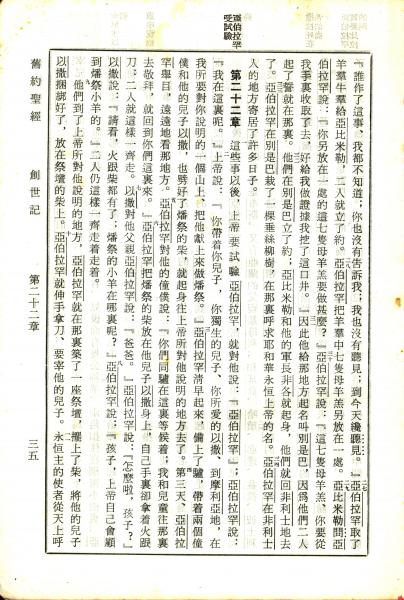 亞伯拉罕
受試驗
『誰作了這事、我都不知道；你也沒有告訴我；我也沒有聽見；到今天纔聽見。』亞伯拉罕取了
羊羣牛羣給亞比米勒，二人就立了約。亞伯拉罕把羊羣中七隻母羊羔另放在一處。亞比米勒問亞
伯拉罕說：『你另放在一處的這七隻母羊羔要做甚麼？』亞伯拉罕說：『這七隻母羊羔、你要從
我手裏收取了去、好給我做證據我挖了這口井。』因此他給那地方起名叫別是巴，因爲他們二人
起了誓就在那裏。他們在別是巴立了約；亞比米勒和他的軍長非各就起身，他們就回非利士地去
了。亞伯拉罕在別是巴栽了一棵垂絲柳樹，在那裏呼求耶和華永恒上帝的名。亞伯拉罕在非利士
人的地方寄居了許多日子。
第二十二章 這些事以後、上帝要試驗亞伯拉罕，就對他說：『亞伯拉罕』，亞伯拉罕說：
『我在這裏呢。』上帝說：『你帶着你兒子、你獨生的兒子、你所愛的以撒、到摩利亞地，在
我所要對你說明的一個山上、把他獻上來做燔祭。』亞伯拉罕清早起來，備上了驢，帶着兩個僮
僕和他的兒子以撒，也劈好了燔祭的柴，就起身往上帝所對他說明的地方去了。第三天、亞伯拉
罕舉目，遠遠地看那地方。亞伯拉罕對他的僮僕說：『你們同驢在這裏等候着；我和兒童往那裏
去敬拜，就回到你們這裏來。』亞伯拉罕把燔祭的柴放在他兒子以撒身上，自己手裏卻拿着火跟
刀：二人就這樣一齊走。以撒對他父親亞伯拉罕說：『爸爸。』亞伯拉罕說：『怎麼啦，孩子？』
以撒說：『請看，火跟柴都有了；燔祭的小羊在哪裏呢？』亞伯拉罕說：『孩子，上帝自己會顧
到燔祭小羊的。』二人仍這樣一齊走着走着。
他們到了上帝所對他說明的地方，亞伯拉罕就在那裏築了一座祭壇，擺上了柴，將他的兒子
以撒捆綁好了，放在祭壇的柴上。亞伯拉罕就伸手拿刀、要宰他的兒子。永恒主的使者從天上呼
舊約聖經 創世記 第二十二章 三五